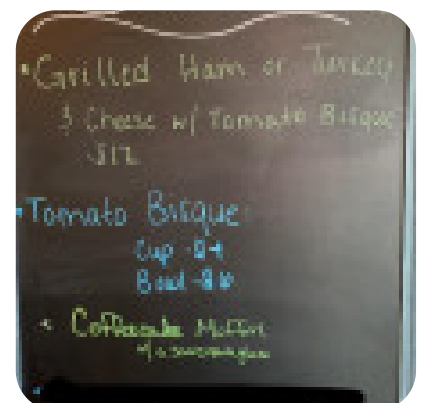 •Grilled Ham or Turkey
& Cheese w/ Tomato Bisque
-$12
•Tomato Bisque:
Cup -$4
Bowl -$
• Coffeecake Muffin